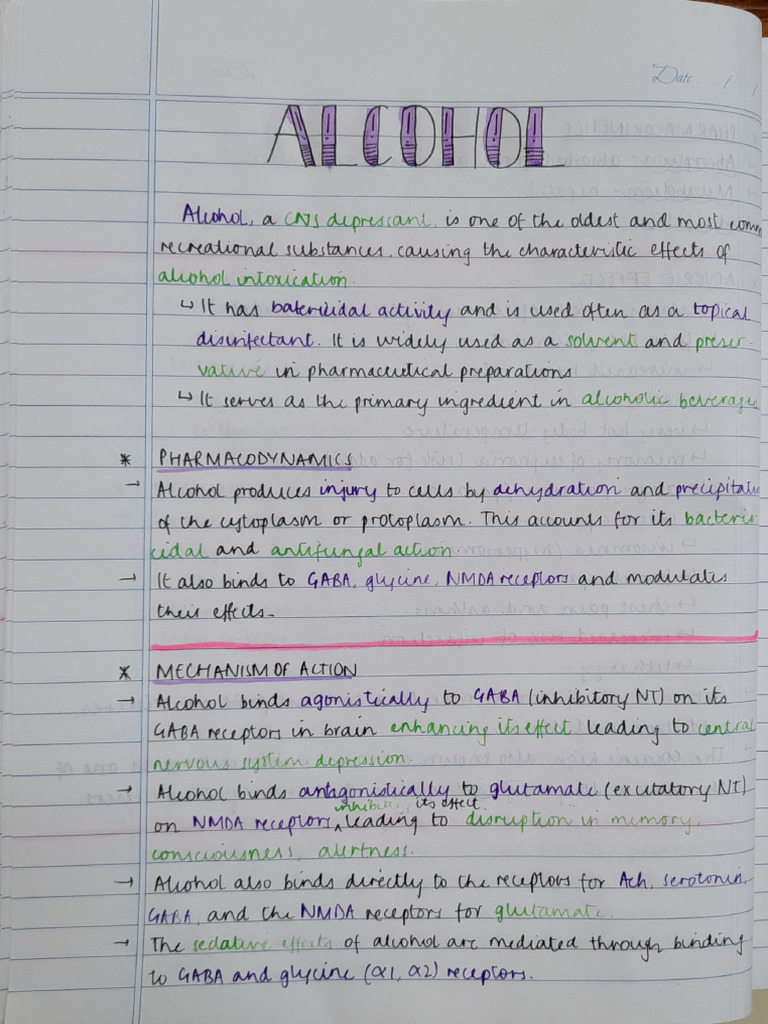 Date / /
ALCOHOL
Alcohol, a CNS depressant, is one of the oldest and most comm
recreational substances, causing the characteristic effects of
alcohol intoxication.
↳ It has batericidal activity and is used often as a topical
disinfectant. It is widely used as a solvent and preser-
vative in pharmaceutical preparations
↳ It serves as the primary ingredient in alcoholic beverages
* PHARMACODYNAMICS
→ Alcohol produces injury to cells by dehydration and precipitati
of the cytoplasm or protoplasm. This accounts for its bacteri
cidal and antifungal action.
→ It also binds to GABA, glycine, NMDA receptors and modulates
their effects.
* MECHANISM OF ACTION
→ Alcohol binds agonistically to GABA (inhibitory NT) on its
GABA receptors in brain enhancing its effect leading to central
nervous system depression.
→ Alcohol binds antagonistically to glutamate (excitatory NT)
its effect
on NMDA receptors, ^ leading to disruption in memory,
consciousness, alertness.
→ Alcohol also binds directly to the receptors for Ach, serotonin,
GABA, and the NMDA receptors for glutamate.
→ The sedative effects of alcohol are mediated through binding
to GABA and glycine (α1, α2) receptors.